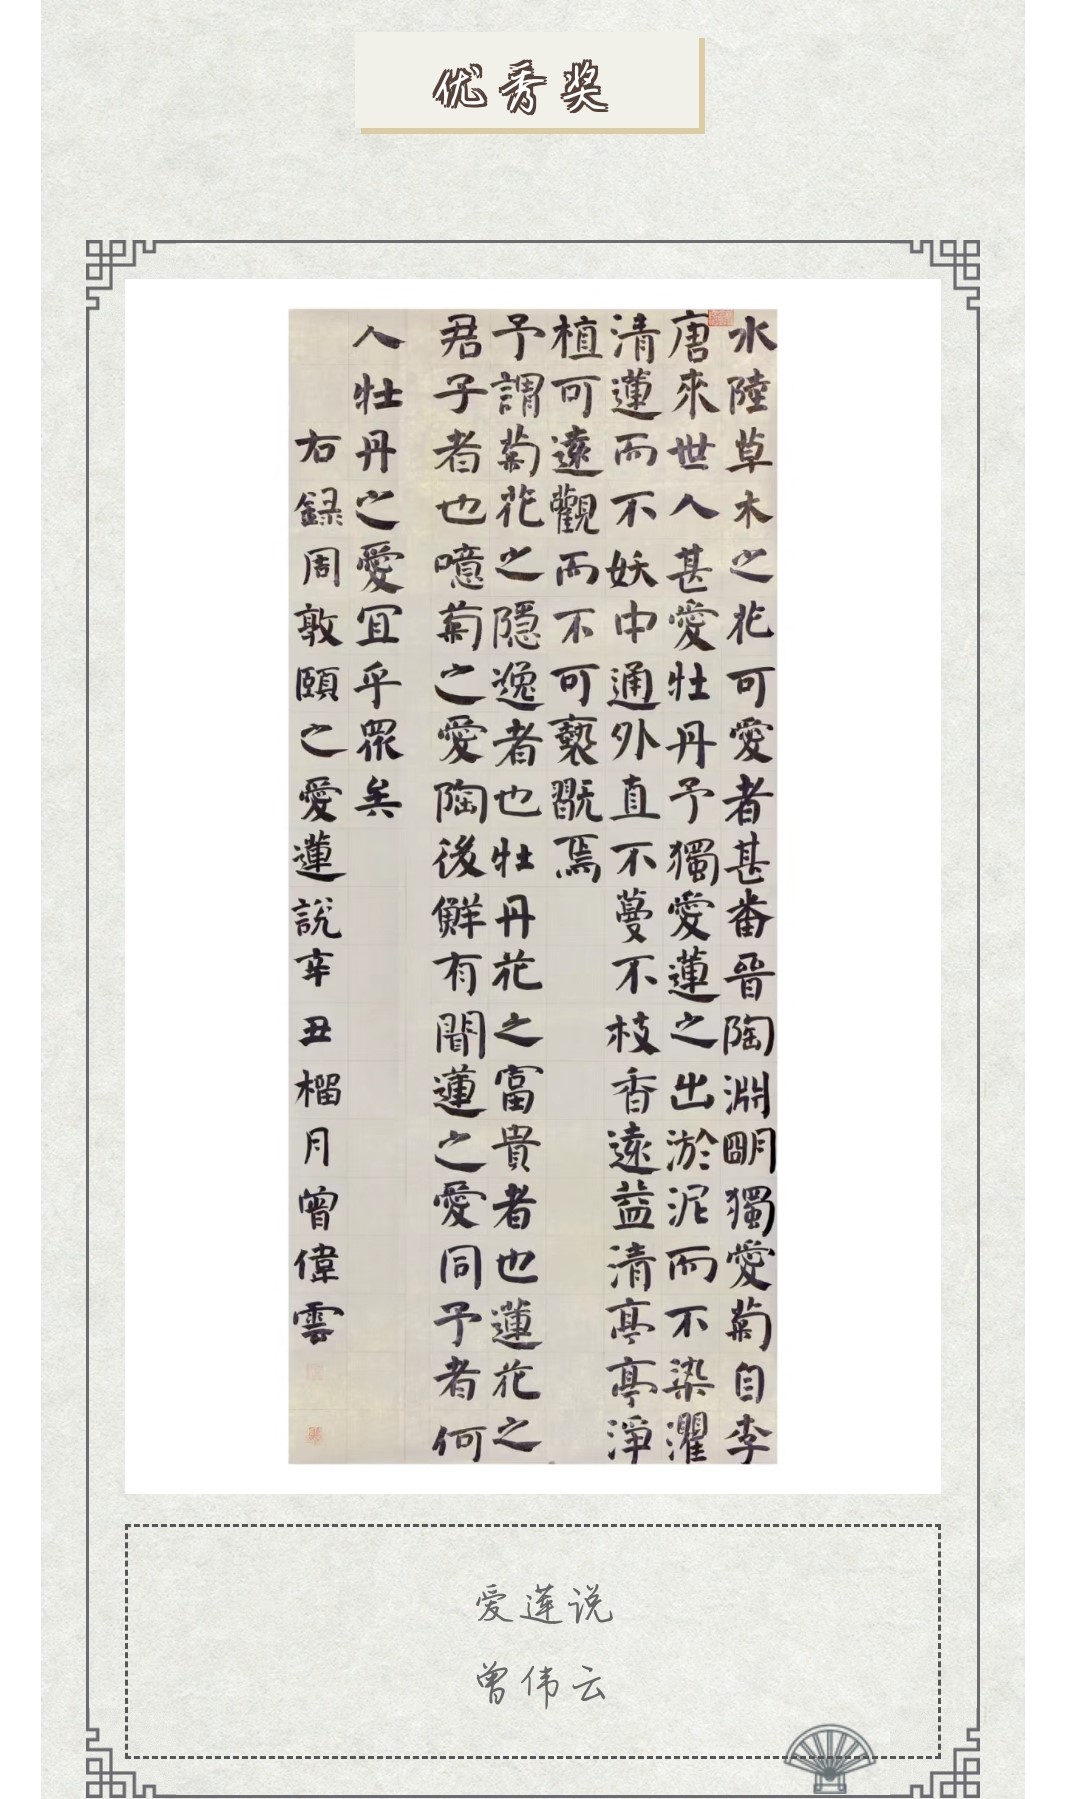 优秀奖
水陸草木之花可愛者甚番晉陶淵明獨愛菊自李
唐來世人甚愛牡丹予獨愛蓮之出淤泥而不染濯
清蓮而不妖中通外直不蔓不枝香遠益清亭亭淨
植可遠觀而不可褻翫焉
予謂菊花之隱逸者也牡丹花之富貴者也蓮花之
君子者也噫菊之愛陶後鮮有聞蓮之愛同予者何
人牡丹之愛宜乎眾矣
右録周敦頤之愛蓮説辛丑榴月曾偉雲
爱莲说
曾伟云